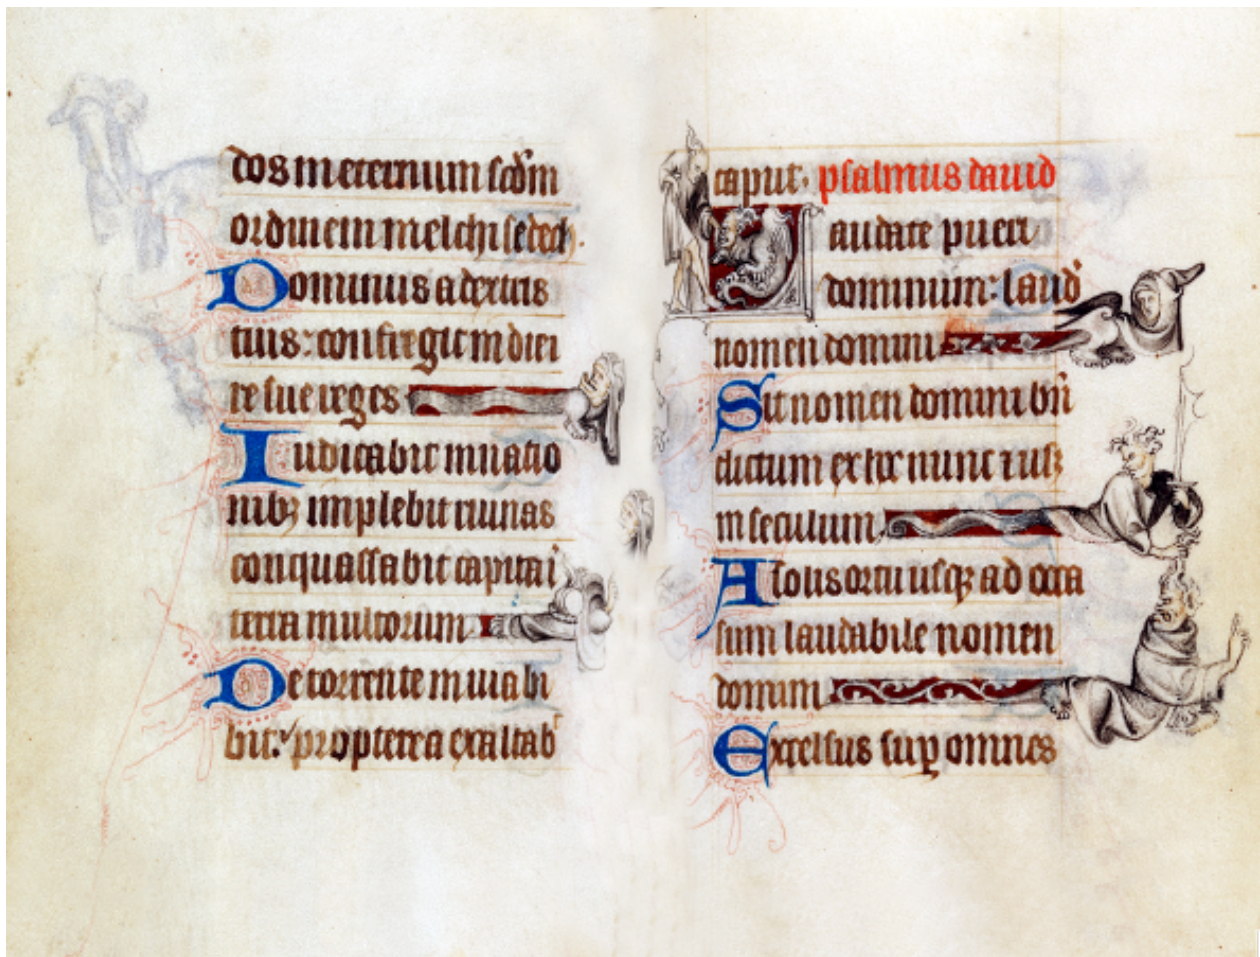 dos in eternum scd̄m
ordinem melchisedech.
Dominus a dextris
tuis: confregit in diei
re sue reges
Iudicabit in natio
nibꝫ implebit ruinas
conquassabit capita ī
terra multorum
De torrente in uia bi
bit: propterea exaltab̄
caput. psalmus dauid
Laudate pueri
dominum: laud̄
nomen domini
Sit nomen domini bn̄
dictum ex hoc nunc et usꝫ
in seculum
A solis ortu usqꝫ ad occa
sum laudabile nomen
domini
Excelsus suꝑ omnes